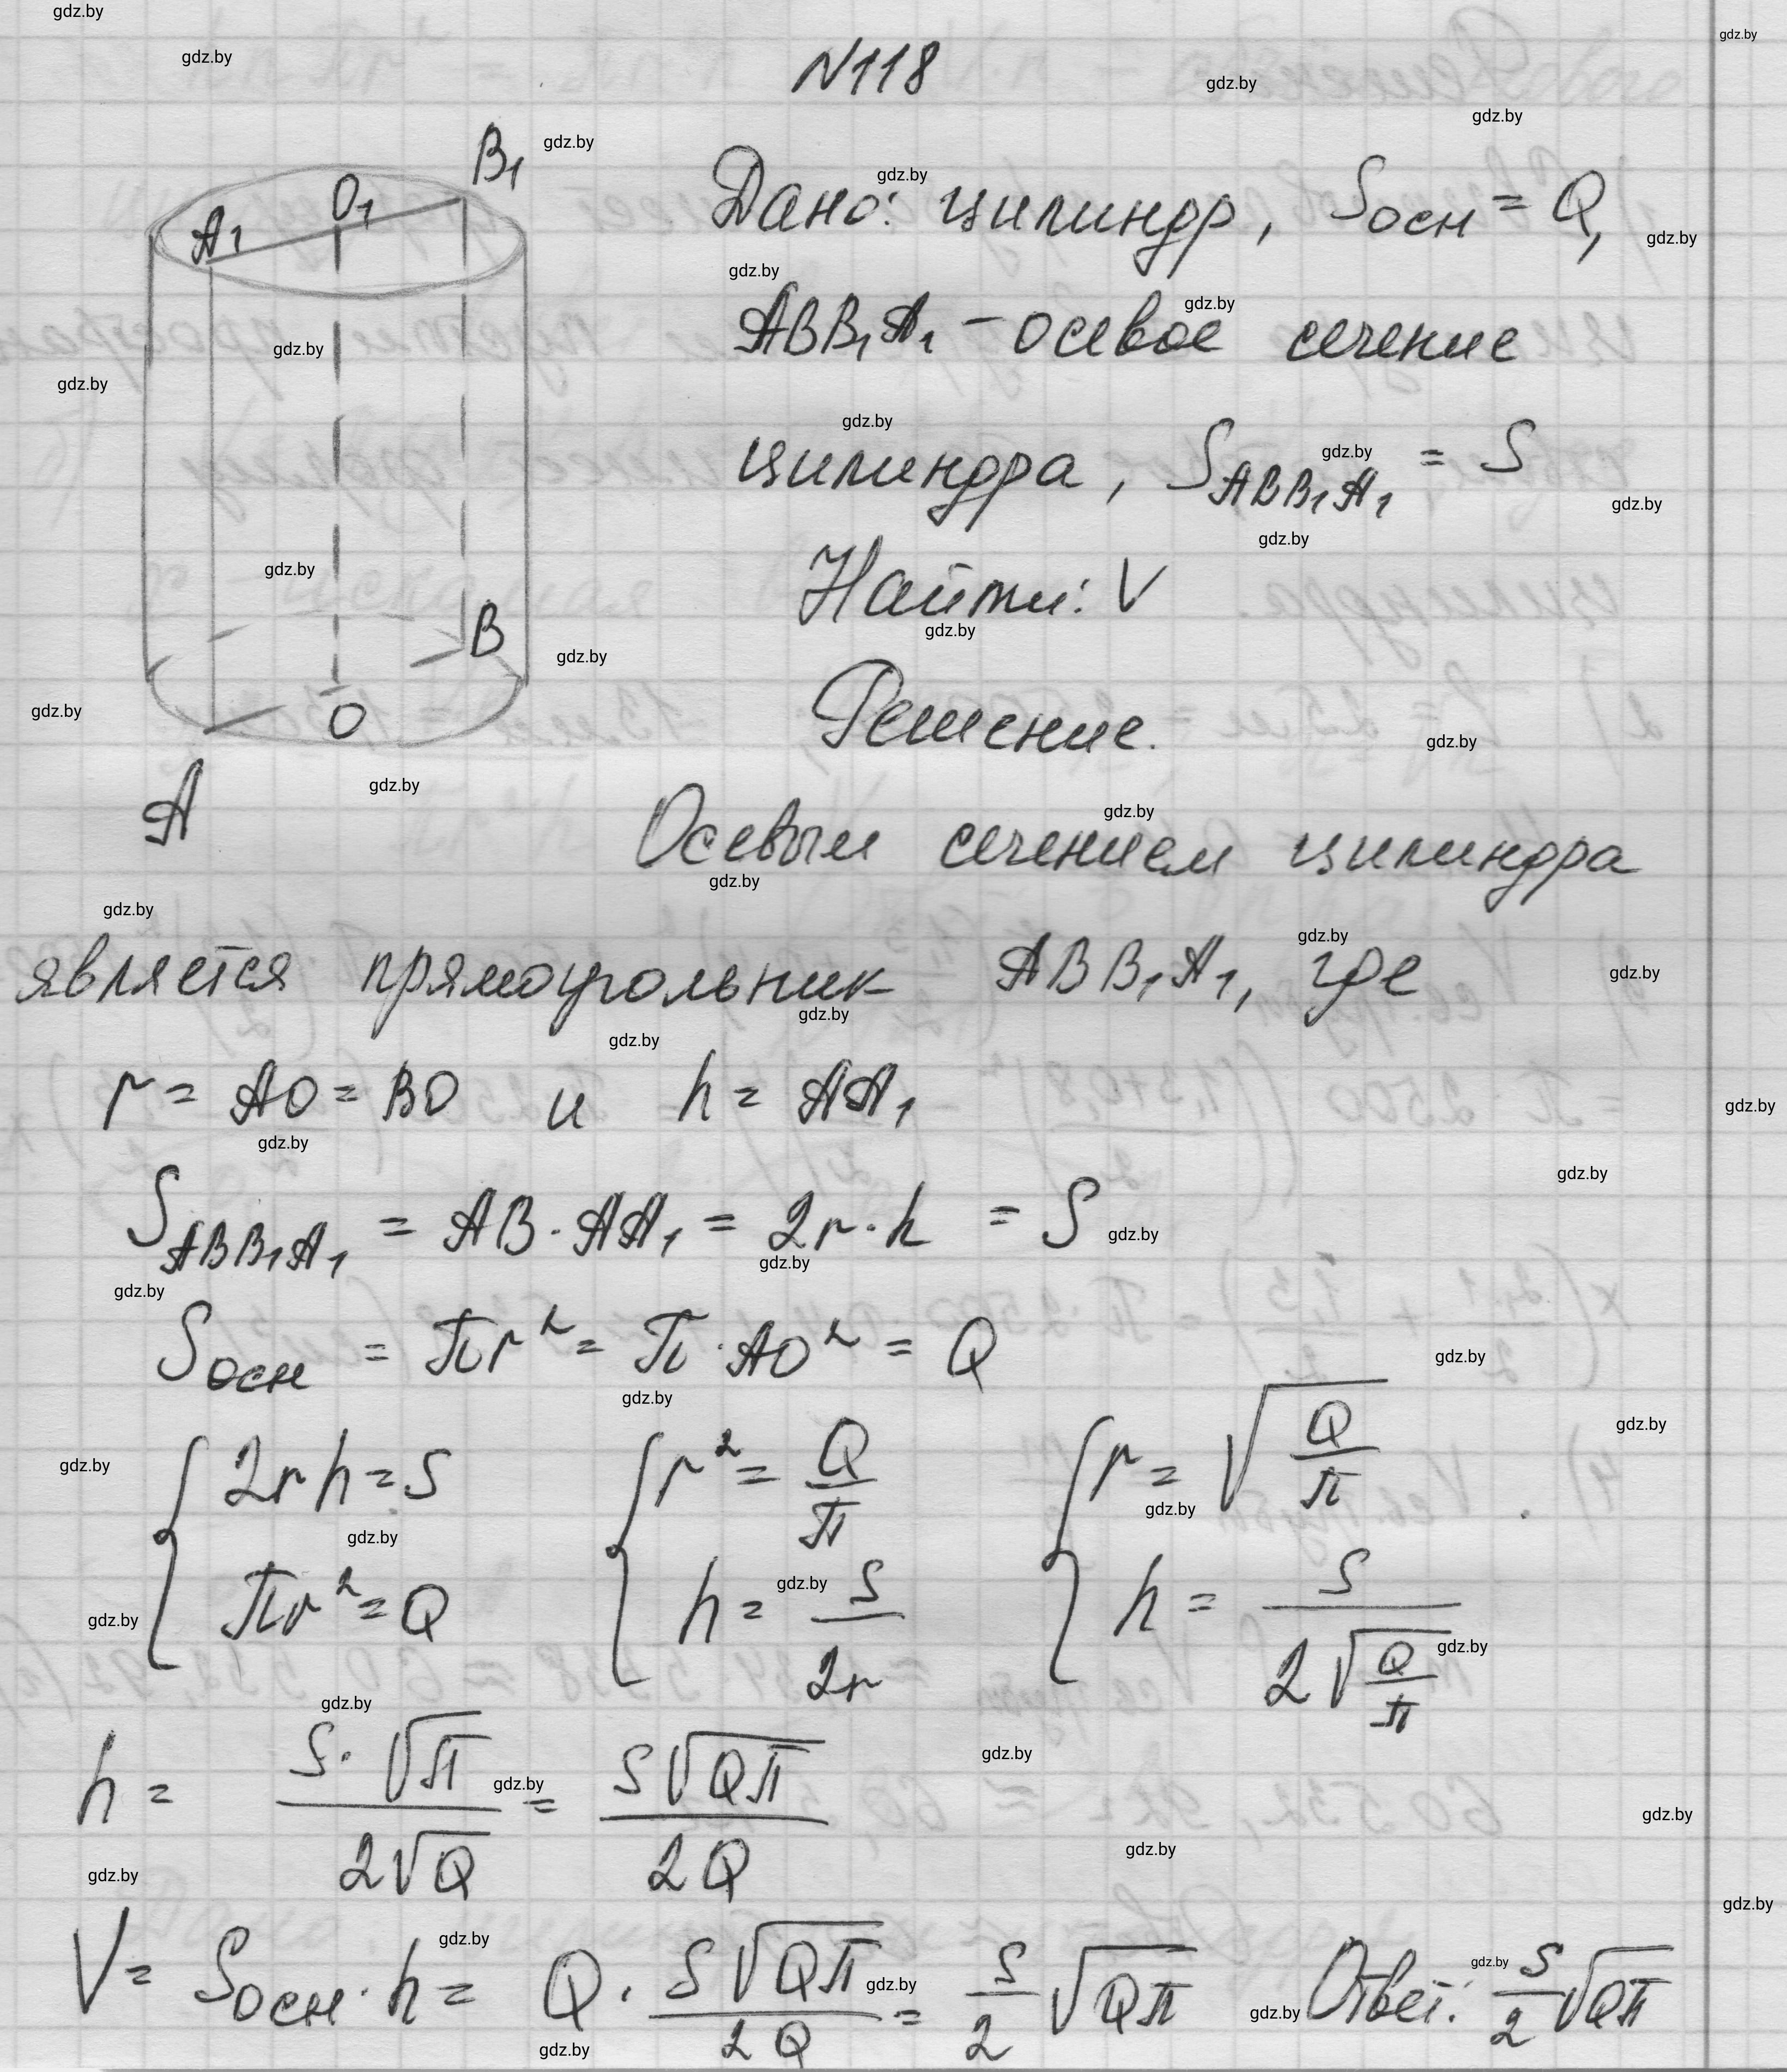 N118
Дано: цилиндр, Sосн = Q,
ABB₁A₁ - осевое сечение
цилиндра, S_ABB₁A₁ = S
Найти: V
Решение.
B₁
O₁
A₁
B
O
A
Осевым сечением цилиндра
является прямоугольник ABB₁A₁, где
r = AO = BO и h = AA₁
S_ABB₁A₁ = AB · AA₁ = 2r · h = S
Sосн = πr² = π · AO² = Q
{ 2rh = S { r² = Q/π { r = √(Q/π)
{ πr² = Q { h = S/2r { h = S/(2√(Q/π))
h = S·√π/(2√Q) = S√(Qπ)/(2Q)
V = Sосн · h = Q · S√(Qπ)/(2Q) = S/2 √(Qπ) Ответ: S/2 √(Qπ)
gdz.by